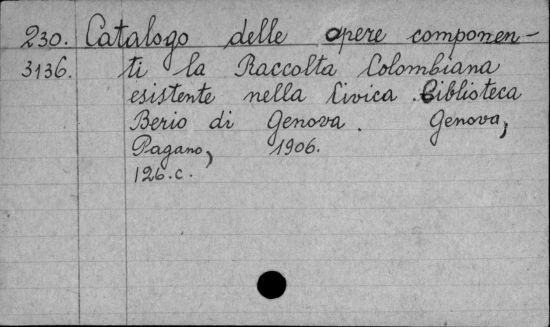 230. Catalogo delle opere componen-
3136. ti la Raccolta Colombiana
esistente nella Civica Biblioteca
Berio di Genova. Genova,
Pagano, 1906.
126.c.